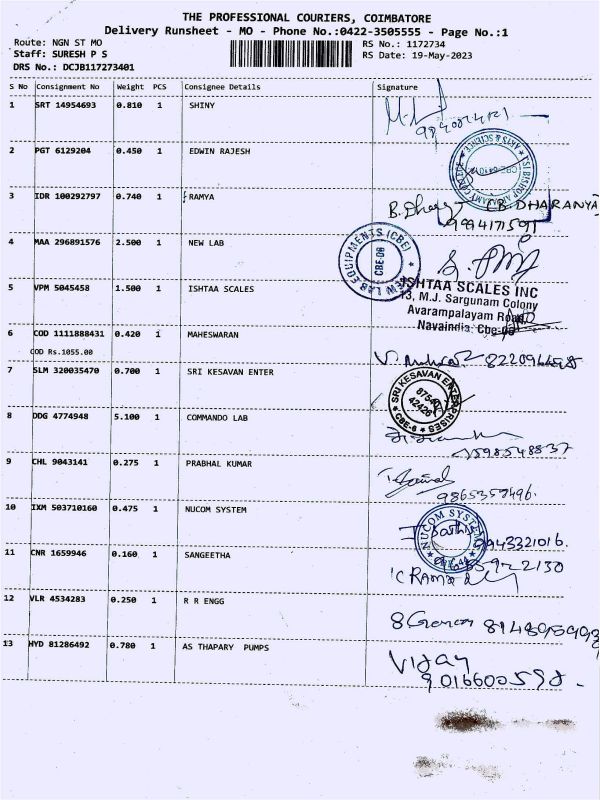 THE PROFESSIONAL COURIERS, COIMBATORE
Delivery Runsheet - MO - Phone No.:0422-3505555 - Page No.:1
Route: NGN ST MO
RS No.: 1172734
Staff: SURESH P S
RS Date: 19-May-2023
DRS No.: DCJB117273401
S No Consignment No Weight PCS Consignee Details Signature
1 SRT 14954693 0.810 1 SHINY
2 PGT 6129204 0.450 1 EDWIN RAJESH
3 IDR 100292797 0.740 1 RAMYA
B. (B. DHARANYA)
4 MAA 296891576 2.500 1 NEW LAB
NEW LAB EQUIPMENTS (CBE)
CBE-06
5 VPM 5045458 1.500 1 ISHTAA SCALES
ISHTAA SCALES INC
13, M.J. Sargunam Colony
Avarampalayam Road,
Navaindia, Cbe-06
6 COD 1111888431 0.420 1 MAHESWARAN
COD Rs.1055.00
7 SLM 320035470 0.700 1 SRI KESAVAN ENTER
SRI KESAVAN ENTERPRISES
42426
CBE-6
8 DDG 4774948 5.100 1 COMMANDO LAB
9 CHL 9043141 0.275 1 PRABHAL KUMAR
9865357496.
10 IXM 503710160 0.475 1 NUCOM SYSTEM
NUCOM SYSTEMS
9943321016.
11 CNR 1659946 0.160 1 SANGEETHA
12 VLR 4534283 0.250 1 R R ENGG
13 HYD 81286492 0.780 1 AS THAPARY PUMPS
Vijay
9016600598.